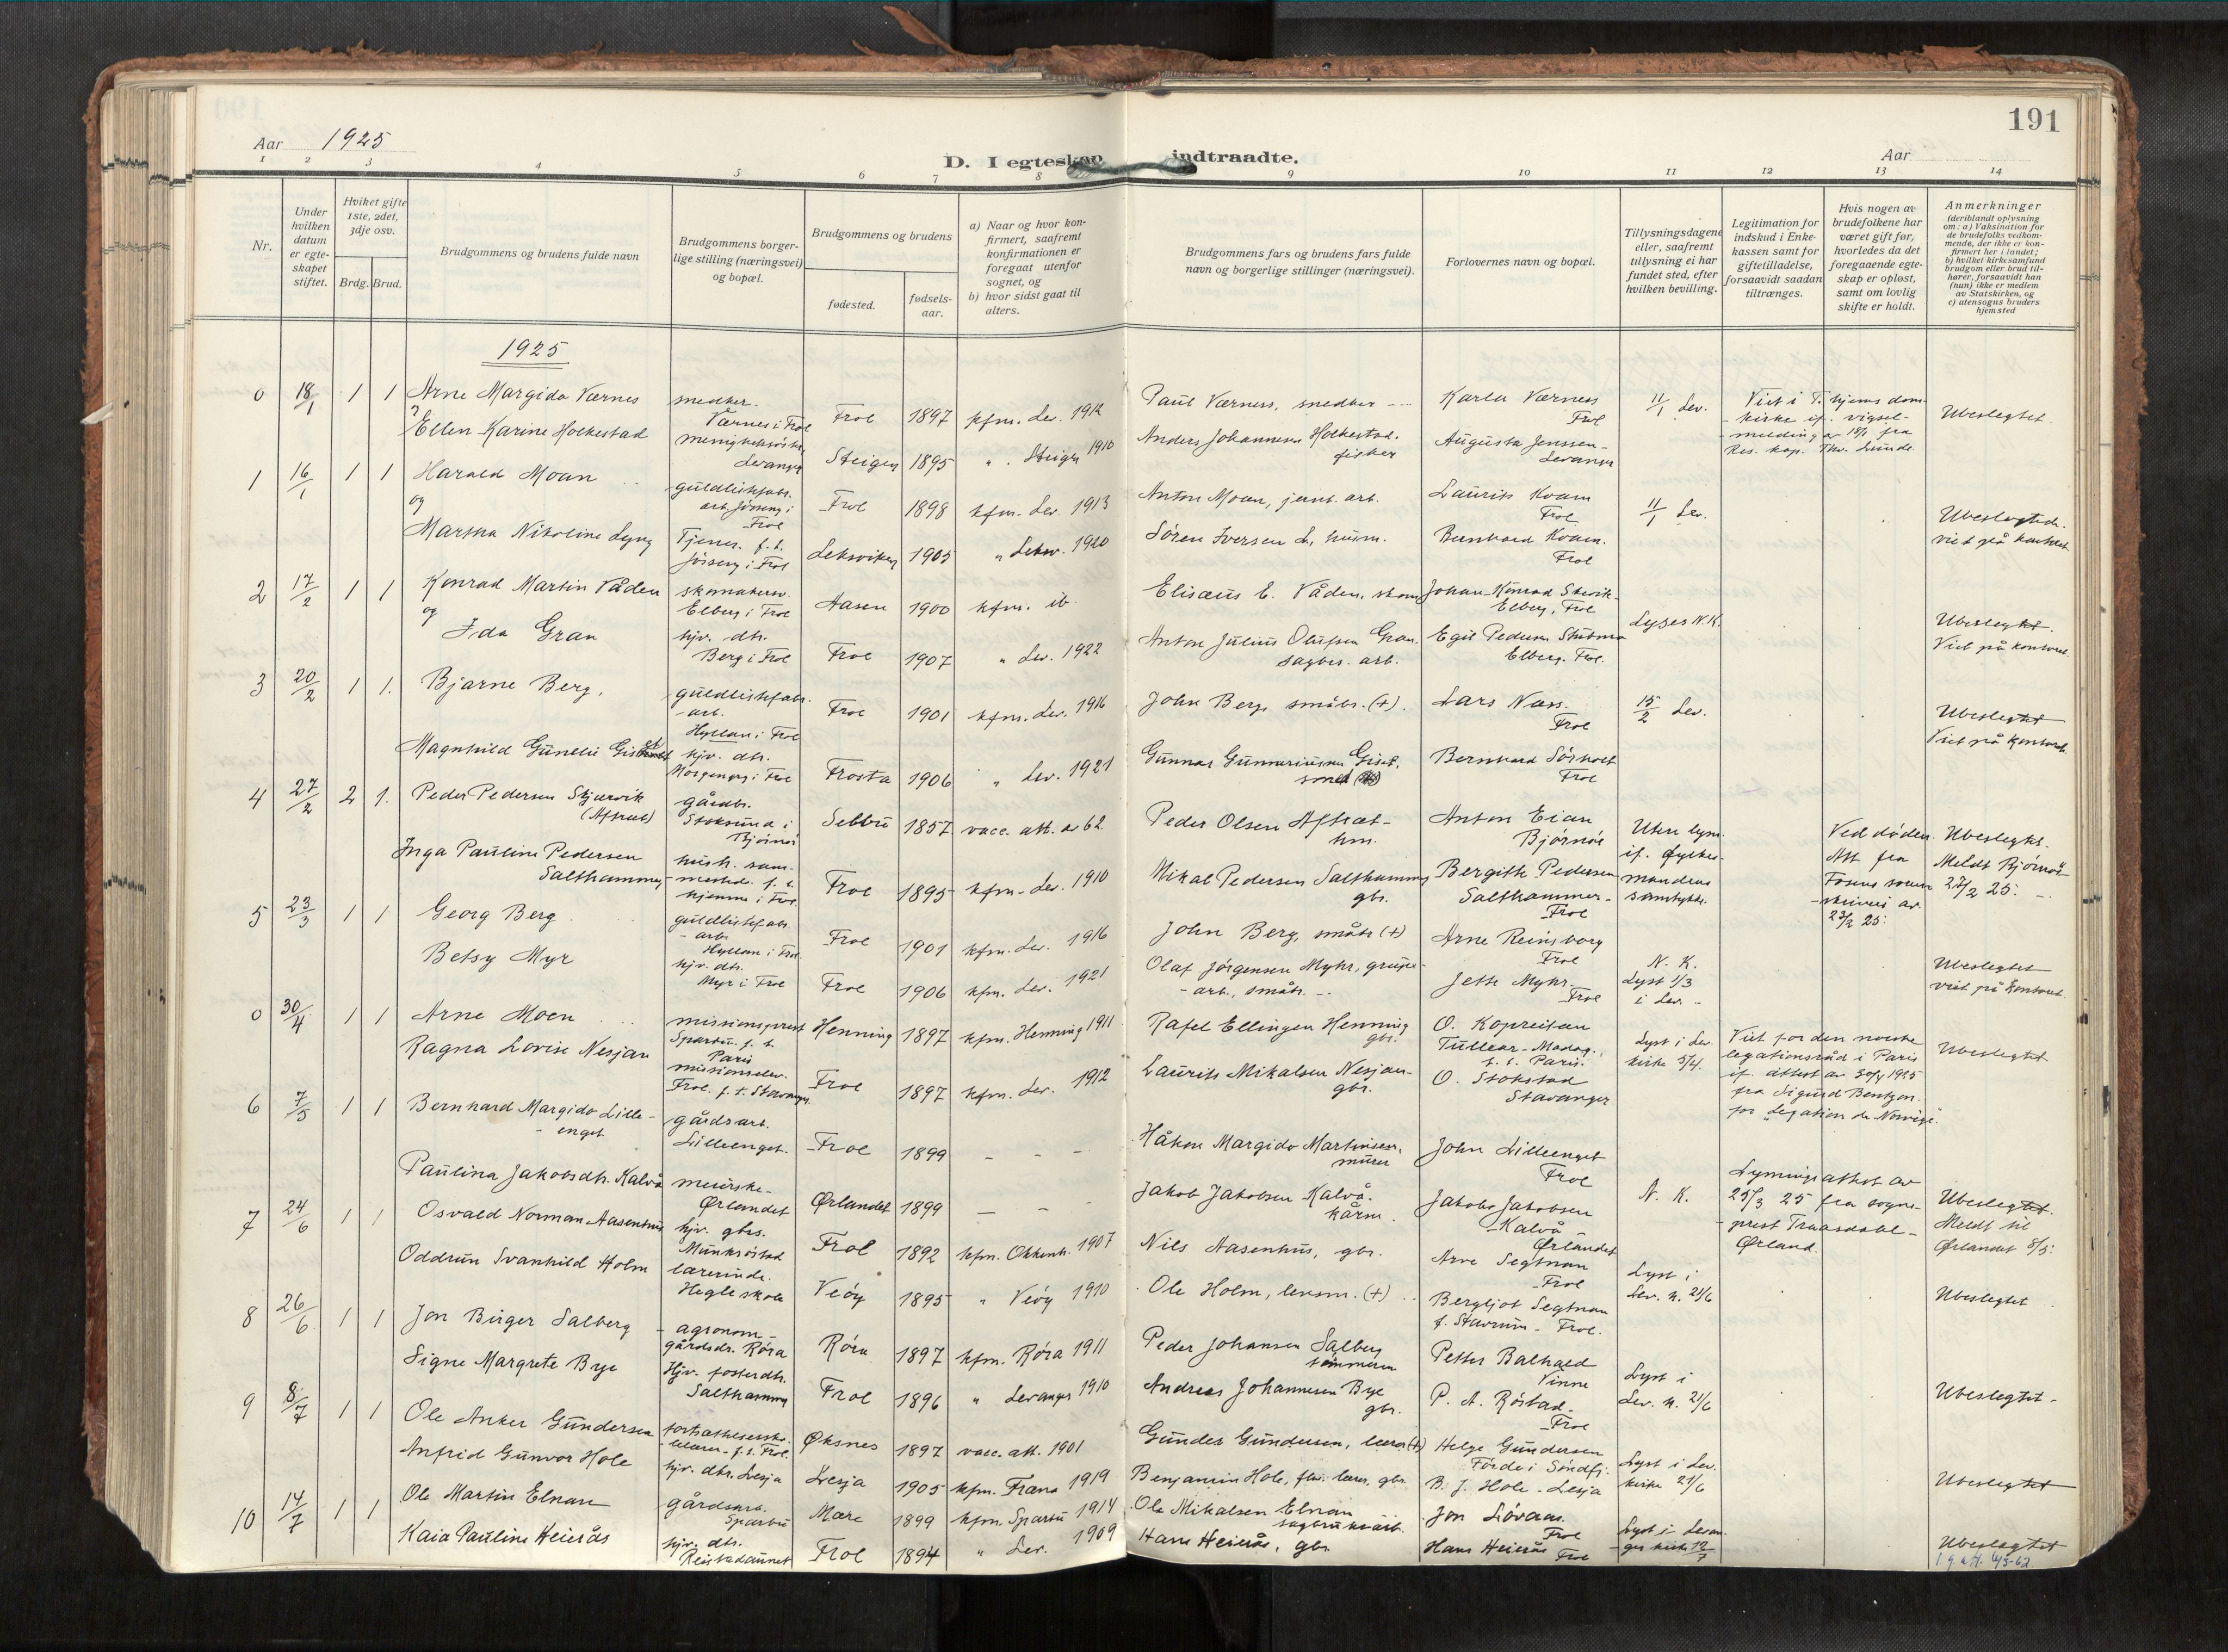 191
Aar 1925
D. I egteskap indtraadte.
Aar
1 2 3 4 5 6 7 8 9 10 11 12 13 14
Nr.
Under hvilken datum er egteskapet stiftet.
Hviket gifte 1ste, 2det, 3dje osv.
Brdg. Brud.
Brudgommens og brudens fulde navn
Brudgommens borgerlige stilling (næringsvei) og bopæl.
Brudgommens og brudens
fødested.
fødsels-aar.
a) Naar og hvor konfirmert, saafremt konfirmationen er foregaat utenfor sognet, og
b) hvor sidst gaat til alters.
Brudgommens fars og brudens fars fulde navn og borgerlige stillinger (næringsvei).
Forlovernes navn og bopæl.
Tillysningsdagene eller, saafremt tillysning ei har fundet sted, efter hvilken bevilling.
Legitimation for indskud i Enkekassen samt for giftetilladelse, forsaavidt saadan tiltrænges.
Hvis nogen av brudefolkene har været gift før, hvorledes da det foregaaende egteskap er opløst, samt om lovlig skifte er holdt.
Anmerkninger
(deriblandt oplysning om: a) Vaksination for de brudefolks vedkommende, der ikke er konfirmert her i landet; b) hvilket kirkesamfund brudgom eller brud tilhører, forsaavidt han (hun) ikke er medlem av Statskirken, og c) utensogns bruders hjemsted
1925
0 18/1 1 1 Arne Margido Værnes snedker. Værnes i Frol Frol 1897 kfm. Lev. 1912 Paul Værness, snedker Karla Værness Frol 11/1 Lev. Viet i T.hjems dom-kirke if. vigsel-melding av 18/1 fra Res. kap. Thv. Lunde. Ubeslegtet
Ellen Karine Holkestad Levanger Steigen 1895 " Steigen 1910 Anders Johannesen Holkestad. fisker Augusta Jenssen Levanger
1 16/1 1 1 Harald Moan guldlistfabr. arb. Jösseng i Frol Frol 1898 kfm. Lev. 1913 Anton Moan, jernb. arb. Laurits Kvam Frol 11/1 Lev. Ubeslegtede. viet på kontoret
og
Martha Nikoline Lyng Tjener. f. t. Jösseng i Frol Leksviken 1905 " Leksv. 1920 Sören Iversen L, husm. Bernhard Kvam. Frol
2 17/2 1 1 Konrad Martin Våden skomakersv. Elberg i Frol Aasen 1900 kfm. ib Elisæus E. Våden, skom. Johan Konrad Skevik Elberg, Frol Lyses N.K. Ubeslegtet. Viet på kontoret.
og
Ida Gran hjv. dtr. Berg i Frol Frol 1907 " Lev. 1922 Anton Julius Olufsen Gran. sagbr. arb. Egil Pedersen Elberg. Frol.
3 20/2 1 1. Bjarne Berg. guldlistfabr. arb. Hyllan i Frol Frol 1901 kfm. Lev. 1916 John Berg småbr. (+). Lars Nass. Frol 15/2 Lev. Ubeslegtet Viet på kontoret.
Magnhild Gunelie hjv. dtr. Frosta 1906 " Lev. 1921 Gunnar Gunnariusen Giset. smed Bernhard Sörholt Frol
4 27/2 2 1. Peder Pedersen Skjærvik (Aftret) gårdbr. Stoksund i Bjørnör Selbu 1857 vacc. att. av 62 Peder Olsen Aftret hm. Anton Eian Bjørnör Uten lysn. if. fylkesmandens samtykke. Ved döden Att fra Fosens sorenskriveri av 23/2 25. Ubeslegtet. Meldt Bjørnör 27/2 25.
Inga Pauline Pedersen Salthammer hjemme i Frol Frol 1895 kfm. Lev. 1910 Mikal Pedersen Salthammer gbr. Bergitte Pedersen Salthammer Frol
5 23/3 1 1 Georg Berg guldlistfabr. arb. Hyllan i Frol Frol 1901 kfm. Lev. 1916 John Berg, småbr (+) Arne Reinsborg Frol N. K. Lyst 1/3 i Lev. Ubeslegtet viet på kontoret.
Betsy Myr hjv. dtr. Myr i Frol Frol 1906 kfm. Lev. 1921 Olaf Jörgensen Myhr, grube-arb., småbr. Jette Myhr Frol
0 30/4 1 1 Arne Moen missionsprest Sparbu f. t. Paris Henning 1897 kfm. Henning 1911 Rafel Ellingen Henning gbr. O. Kopreitan Tullear-Madag. f. t. Paris. Lyst i Lev. kirke 5/4. Viet for den norske legationsråd i Paris if. attest av 30/4 1925 fra Sigurd Bentzon. for "Legation de Norvège". Ubeslegtet
Ragna Lovise Nesjan missionselev. Frol. f. t. Stavanger Frol 1897 kfm. Lev. 1912 Laurits Mikalsen Nesjan gbr. O. Stokstad Stavanger
6 7/5 1 1 Bernhard Margido Lilleenget gårdsarb. Lilleenget. Frol 1899 - - - Håkon Margido Martinsen, murer John Lilleenget Frol N. K. Lysningsattest av 25/3 25 fra sogneprest Traasdahl Ørland. Ubeslegtet. Meldt til Ørlandet 8/5.
Paulina Jakobsdtr. Kalvå meierske Ørlandet Ørlandet 1899 - - - Jakob Jakobsen Kalvå. Jakob Jakobsen Kalvå Ørlandet
7 24/6 1 1 Osvald Norman Aasenhus hjv. gbrs. Munkröstad Frol 1892 kfm. 1907 Nils Aasenhus, gbr. Arne Segtnan Frol Lyst i Lev. k. 21/6 Ubeslegtet
Oddrun Svanhild Holm lærerinde. Hegle skole Veöy 1895 " Veöy 1910 Ole Holm, lensm. (+) Bergljot Segtnan f. Stavrum - Frol.
8 26/6 1 1 Jon Birger Salberg agronom gårdsdr. Röra Röra 1897 kfm. Röra 1911 Peder Johansen Salberg tömmerm Petter Balhald Vinne Lyst i Lev. k. 21/6 Ubeslegtet
Signe Margrete Bye Hjv. fosterdtr. Salthammer Frol 1896 " Levanger 1910 Andreas Johannesen Bye gbr. P. A. Röstad Frol
9 8/7 1 1 Ole Anker Gundersen f. t. Frol. Øksnes 1897 vacc. att. 1901 Gunder Gundersen, lærer (+) Helge Gundersen Förde i Söndfj. Lyst i Lev. kirke 21/6 Ubeslegtet
Anfrid Gunvor Hole hjv. dtr. Lesja Lesja 1905 kfm. Fræna 1919 Benjamin Hole, lærer, gbr. B. J. Hole - Lesja
10 14/7 1 1 Ole Martin Elnan gårdsarb. Sparbu Mære 1899 kfm. Sparbu 1914 Ole Mikalsen Elnan sagbruksarb. Jon Lövaas. Frol Lyst i Levanger kirke 12/7 Ubeslegtet
Kaia Pauline Heierås hjv. dtr. Reistadaunet Frol 1894 " Lev. 1909 Hans Heierås, gbr. Hans Heierås Frol